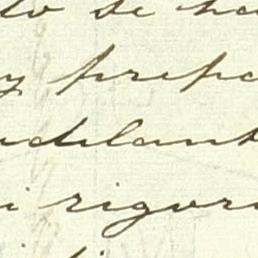 to se ha
y prepa
adelant
i rigor